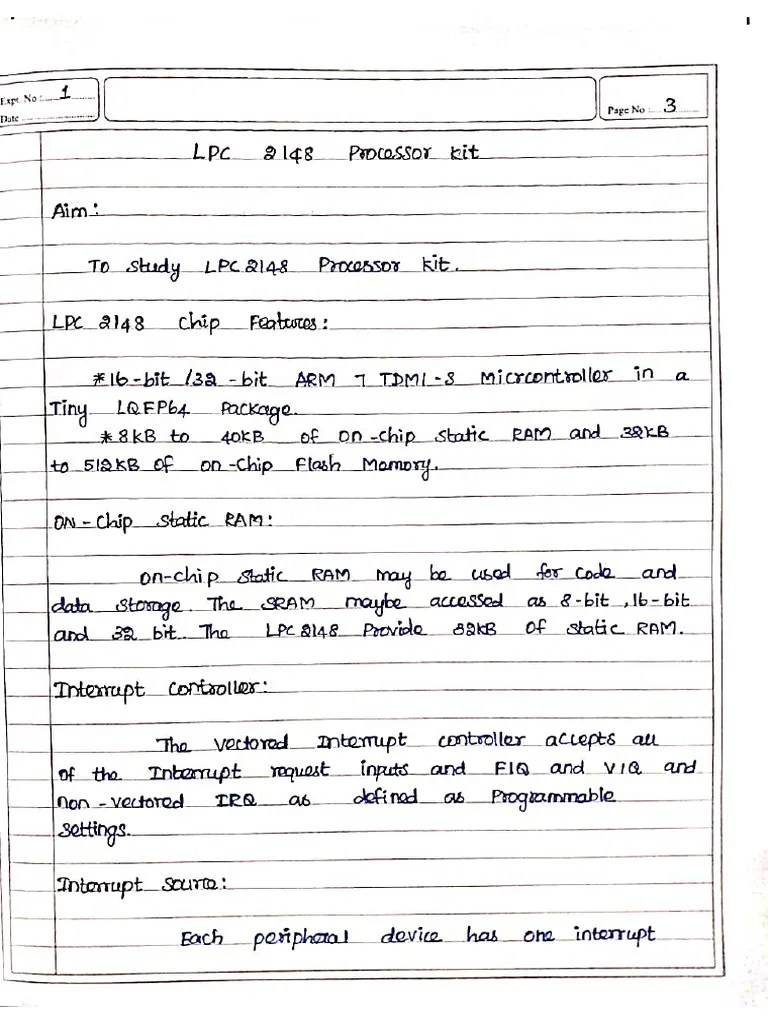 Expt. No : 1
Date
Page No : 3
LPC 2148 Processor kit
Aim:
To study LPC 2148 Processor kit.
LPC 2148 Chip Features:
*16-bit /32 -bit ARM 7 TDMI-S Micrcontroller in a
Tiny LQFP64 Package.
*8KB to 40KB of on-chip static RAM and 32KB
to 512KB of on-chip Flash Memory.
ON-Chip Static RAM:
On-chip static RAM may be used for code and
data storage. The SRAM maybe accessed as 8-bit, 16-bit
and 32 bit. The LPC 2148 Provide 32KB of static RAM.
Interrupt controller:
The vectored Interrupt controller accepts all
of the Interrupt request inputs and FIQ and VIQ and
non-vectored IRQ as defined as Programmable
settings.
Interrupt source:
Each peripheral device has one interrupt